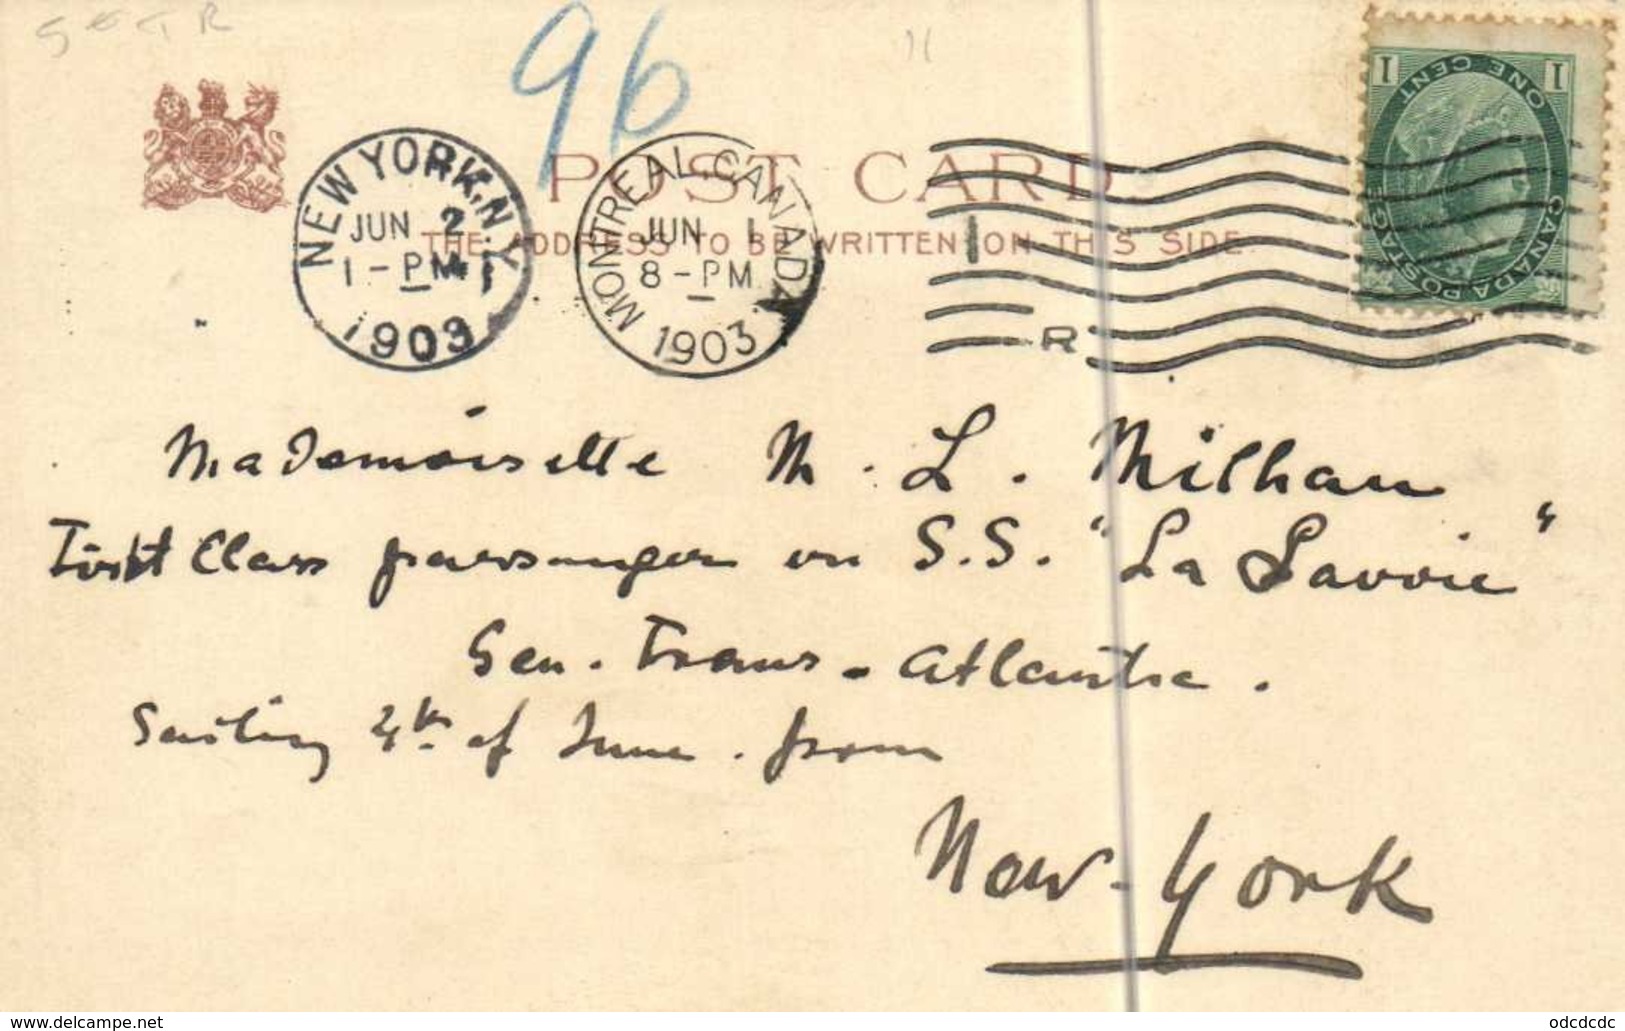 96
POST CARD
THE ADDRESS TO BE WRITTEN ON THIS SIDE.
NEW YORK, N.Y.
JUN 2
1-PM
1903
MONTREAL CANADA
JUN 1
8-PM
1903
R
CANADA POSTAGE
ONE CENT
1 1
Mademoiselle M. L. Milhau
First Class passenger on S.S. "La Savoie"
Gen. Trans-Atlantic.
Sailing 4th of June. from
New-York
www.delcampe.net
odcdcdc